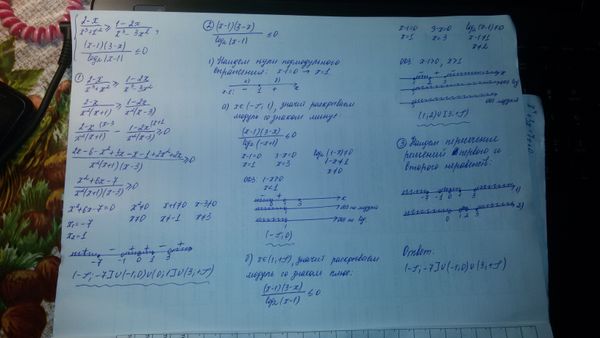 { (2-x)/(x³+x²) ≥ (1-2x)/(x³-3x²),
((x-1)(3-x))/(log₂|x-1|) ≤ 0
① (2-x)/(x³+x²) ≥ (1-2x)/(x³-3x²)
(2-x)/(x²(x+1)) ≥ (1-2x)/(x²(x-3))
(2-x)/(x²(x+1)) - (1-2x)/(x²(x-3)) ≥ 0
(2x-6-x²+3x-x-1+2x²+2x)/(x²(x+1)(x-3)) ≥ 0
(x²+6x-7)/(x²(x+1)(x-3)) ≥ 0
x²+6x-7=0 x²≠0 x+1≠0 x-3≠0
x₁=-7 x≠0 x≠-1 x≠3
x₂=1
-7 -1 0 1 3
(-∞;-7]∪(-1;0)∪(0;1]∪(3;+∞)
② ((x-1)(3-x))/(log₂|x-1|) ≤ 0
1) Найдем нули подмодульного
выражения: x-1=0 → x=1.
а) x∈(-∞,1), значит раскрываем
модуль со знаком минус:
((x-1)(3-x))/(log₂(-x+1)) ≤ 0
x-1=0 3-x=0 log₂(1-x)≠0
x=1 x=3 1-x≠1
x≠0
ОДЗ: 1-x>0
x<1
(-∞,0)
б) x∈(1,+∞), значит раскрываем
модуль со знаком плюс:
((x-1)(3-x))/(log₂(x-1)) ≤ 0
x-1=0 3-x=0 log₂(x-1)≠0
x=1 x=3 x-1≠1
x≠2
ОДЗ: x-1>0, x>1
(1,2)∪[3,+∞)
③ Найдем пересечение
решений первого со
второго неравенств:
1)
2)
Ответ:
(-∞;-7]∪(-1,0)∪(3;+∞)